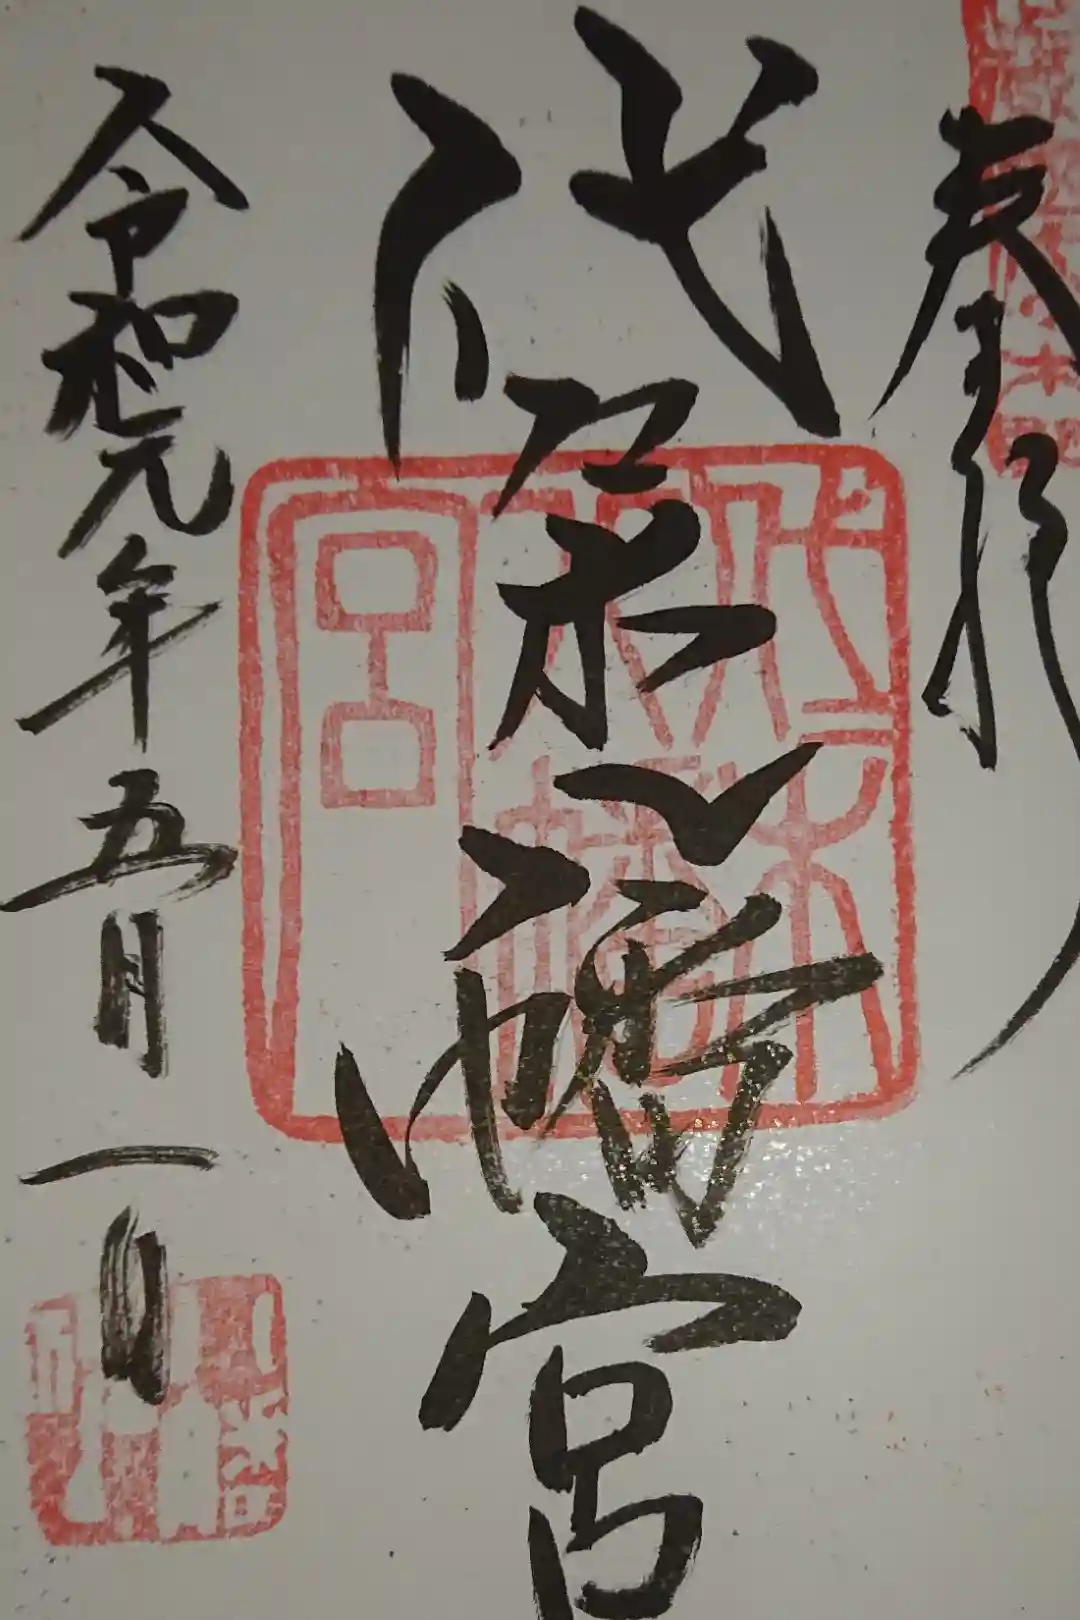 奉拝
代々木八幡宮
代々木
八幡
宮
令和元年五月一日